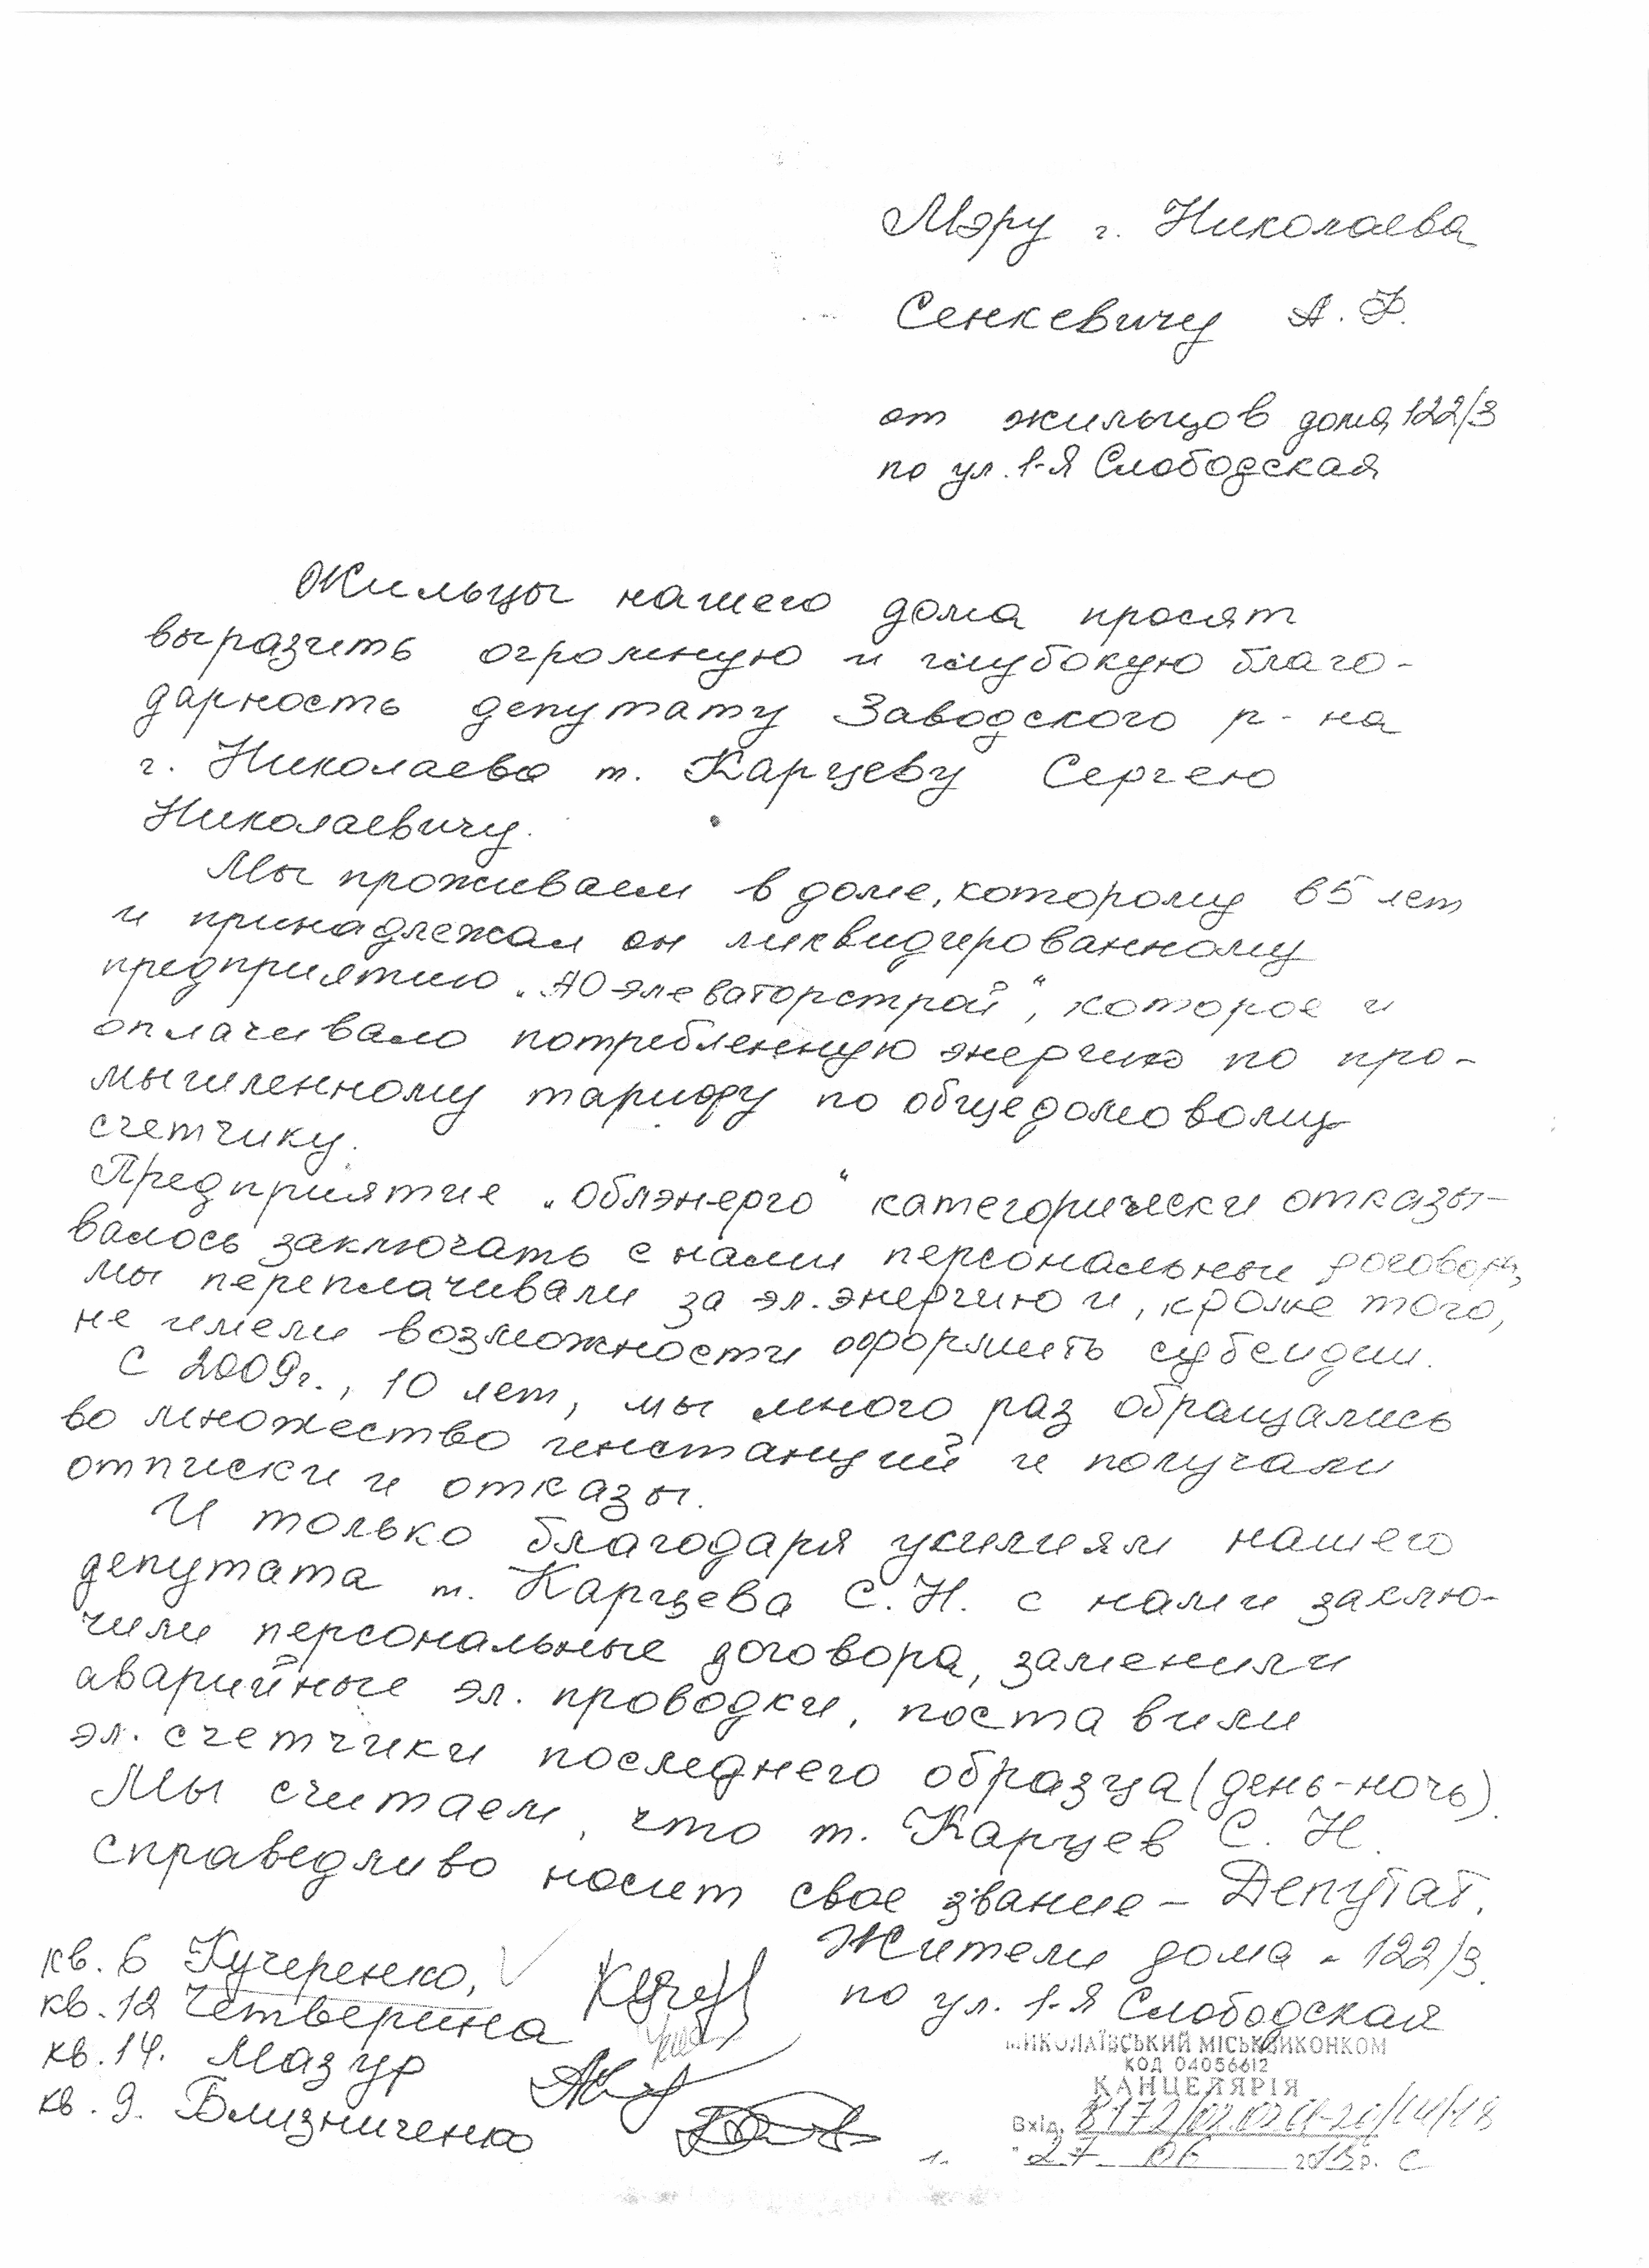 Мэру г. Николаева
Сенкевичу А. Ф.
от жильцов дома 122/3
по ул. 1-я Слободская
Жильцы нашего дома просят
выразить огромную и глубокую благо-
дарность депутату Заводского р-на
г. Николаева т. Карцеву Сергею
Николаевичу.
Мы проживаем в доме, которому 65 лет
и принадлежал он ликвидированному
предприятию „АО элеваторстрой“, которое и
оплачивало потребленную энергию по про-
мышленному тарифу по общедомовому
счетчику.
Предприятие „Облэнерго“ категорически отказы-
валось заключать с нами персональные договора,
мы переплачивали за эл. энергию и, кроме того,
не имели возможности оформить субсидии.
С 2009г., 10 лет, мы много раз обращались
во множество инстанций и получали
отписки и отказы.
И только благодаря усилиям нашего
депутата т. Карцева С. Н. с нами заклю-
чили персональные договора, заменили
аварийные эл. проводки, поставили
эл. счетчики последнего образца (день-ночь).
Мы считаем, что т. Карцев С. Н.
справедливо носит свое звание – Депутат.
Жители дома - 122/3
по ул. 1-я Слободская
кв. 6 Кучеренко,
кв. 12 Четверина
кв. 14. Мазур
кв. 9. Близниченко
МИКОЛАЇВСЬКИЙ МІСЬКВИКОНКОМ
КОД 04056612
КАНЦЕЛЯРІЯ
Вхід.
" 27 " 06 20 р.